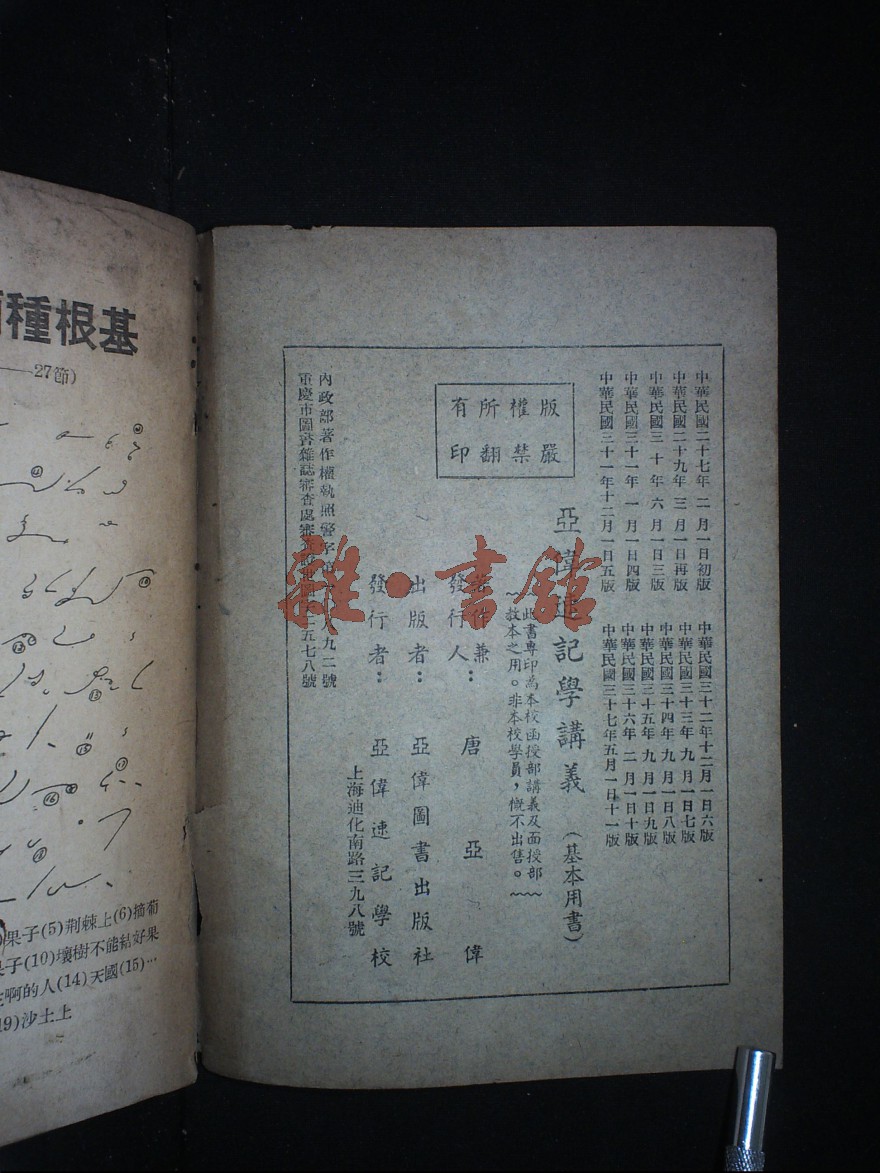 中華民國二十七年 二 月一日初版
中華民國二十九年 三 月一日再版
中華民國三十年 六 月一日三版
中華民國三十一年 一 月一日四版
中華民國三十一年十二月一日五版
中華民國三十二年十二月一日六版
中華民國三十三年 九 月一日七版
中華民國三十四年 九 月一日八版
中華民國三十五年 九 月一日九版
中華民國三十六年 二 月一日十版
中華民國三十七年五月一日十一版
亞偉速記學講義(基本用書)
版權所有
嚴禁翻印
此書專印為本校函授部講義及面授部
教本之用。非本校學員,慨不出售。
著作兼
發行人: 唐亞偉
出版者: 亞偉圖書出版社
發行者: 亞偉速記學校
上海迪化南路三九八號
內政部著作權執照警字第 八九二號
重慶市圖書雜誌審查處審查 五七八號
雜·書館
種根基
27節)
果子(5)荆棘上(6)摘葡
子(10)壞樹不能結好果
啊的人(14)天國(15)…
19)沙土上